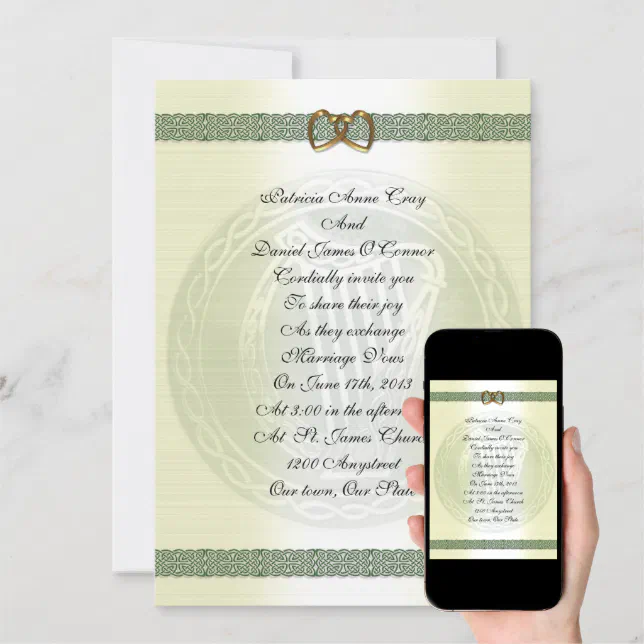 Patricia Anne Cray
And
Daniel James O'Connor
Cordially invite you
To share their joy
As they exchange
Marriage Vows
On June 17th, 2013
At 3:00 in the afterno
At St. James Church
1200 Anystreet
Our town, Our State
Patricia Anne Cray
And
Daniel James O'Connor
Cordially invite you
To share their joy
As they exchange
Marriage Vows
On June 17th, 2013
At 3:00 in the afternoon
At St. James Church
1200 Anystreet
Our town, Our State